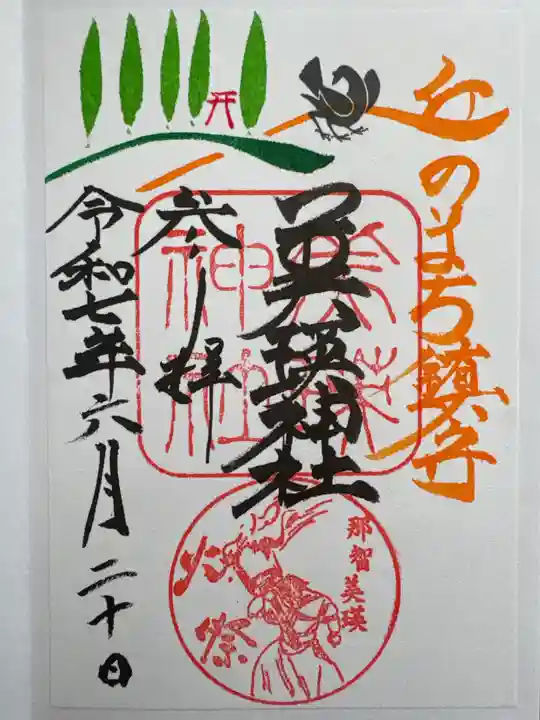 丘のまち鎮守
美瑛神社
参拝
令和七年六月二十日
美瑛
神社
那智美瑛
火祭